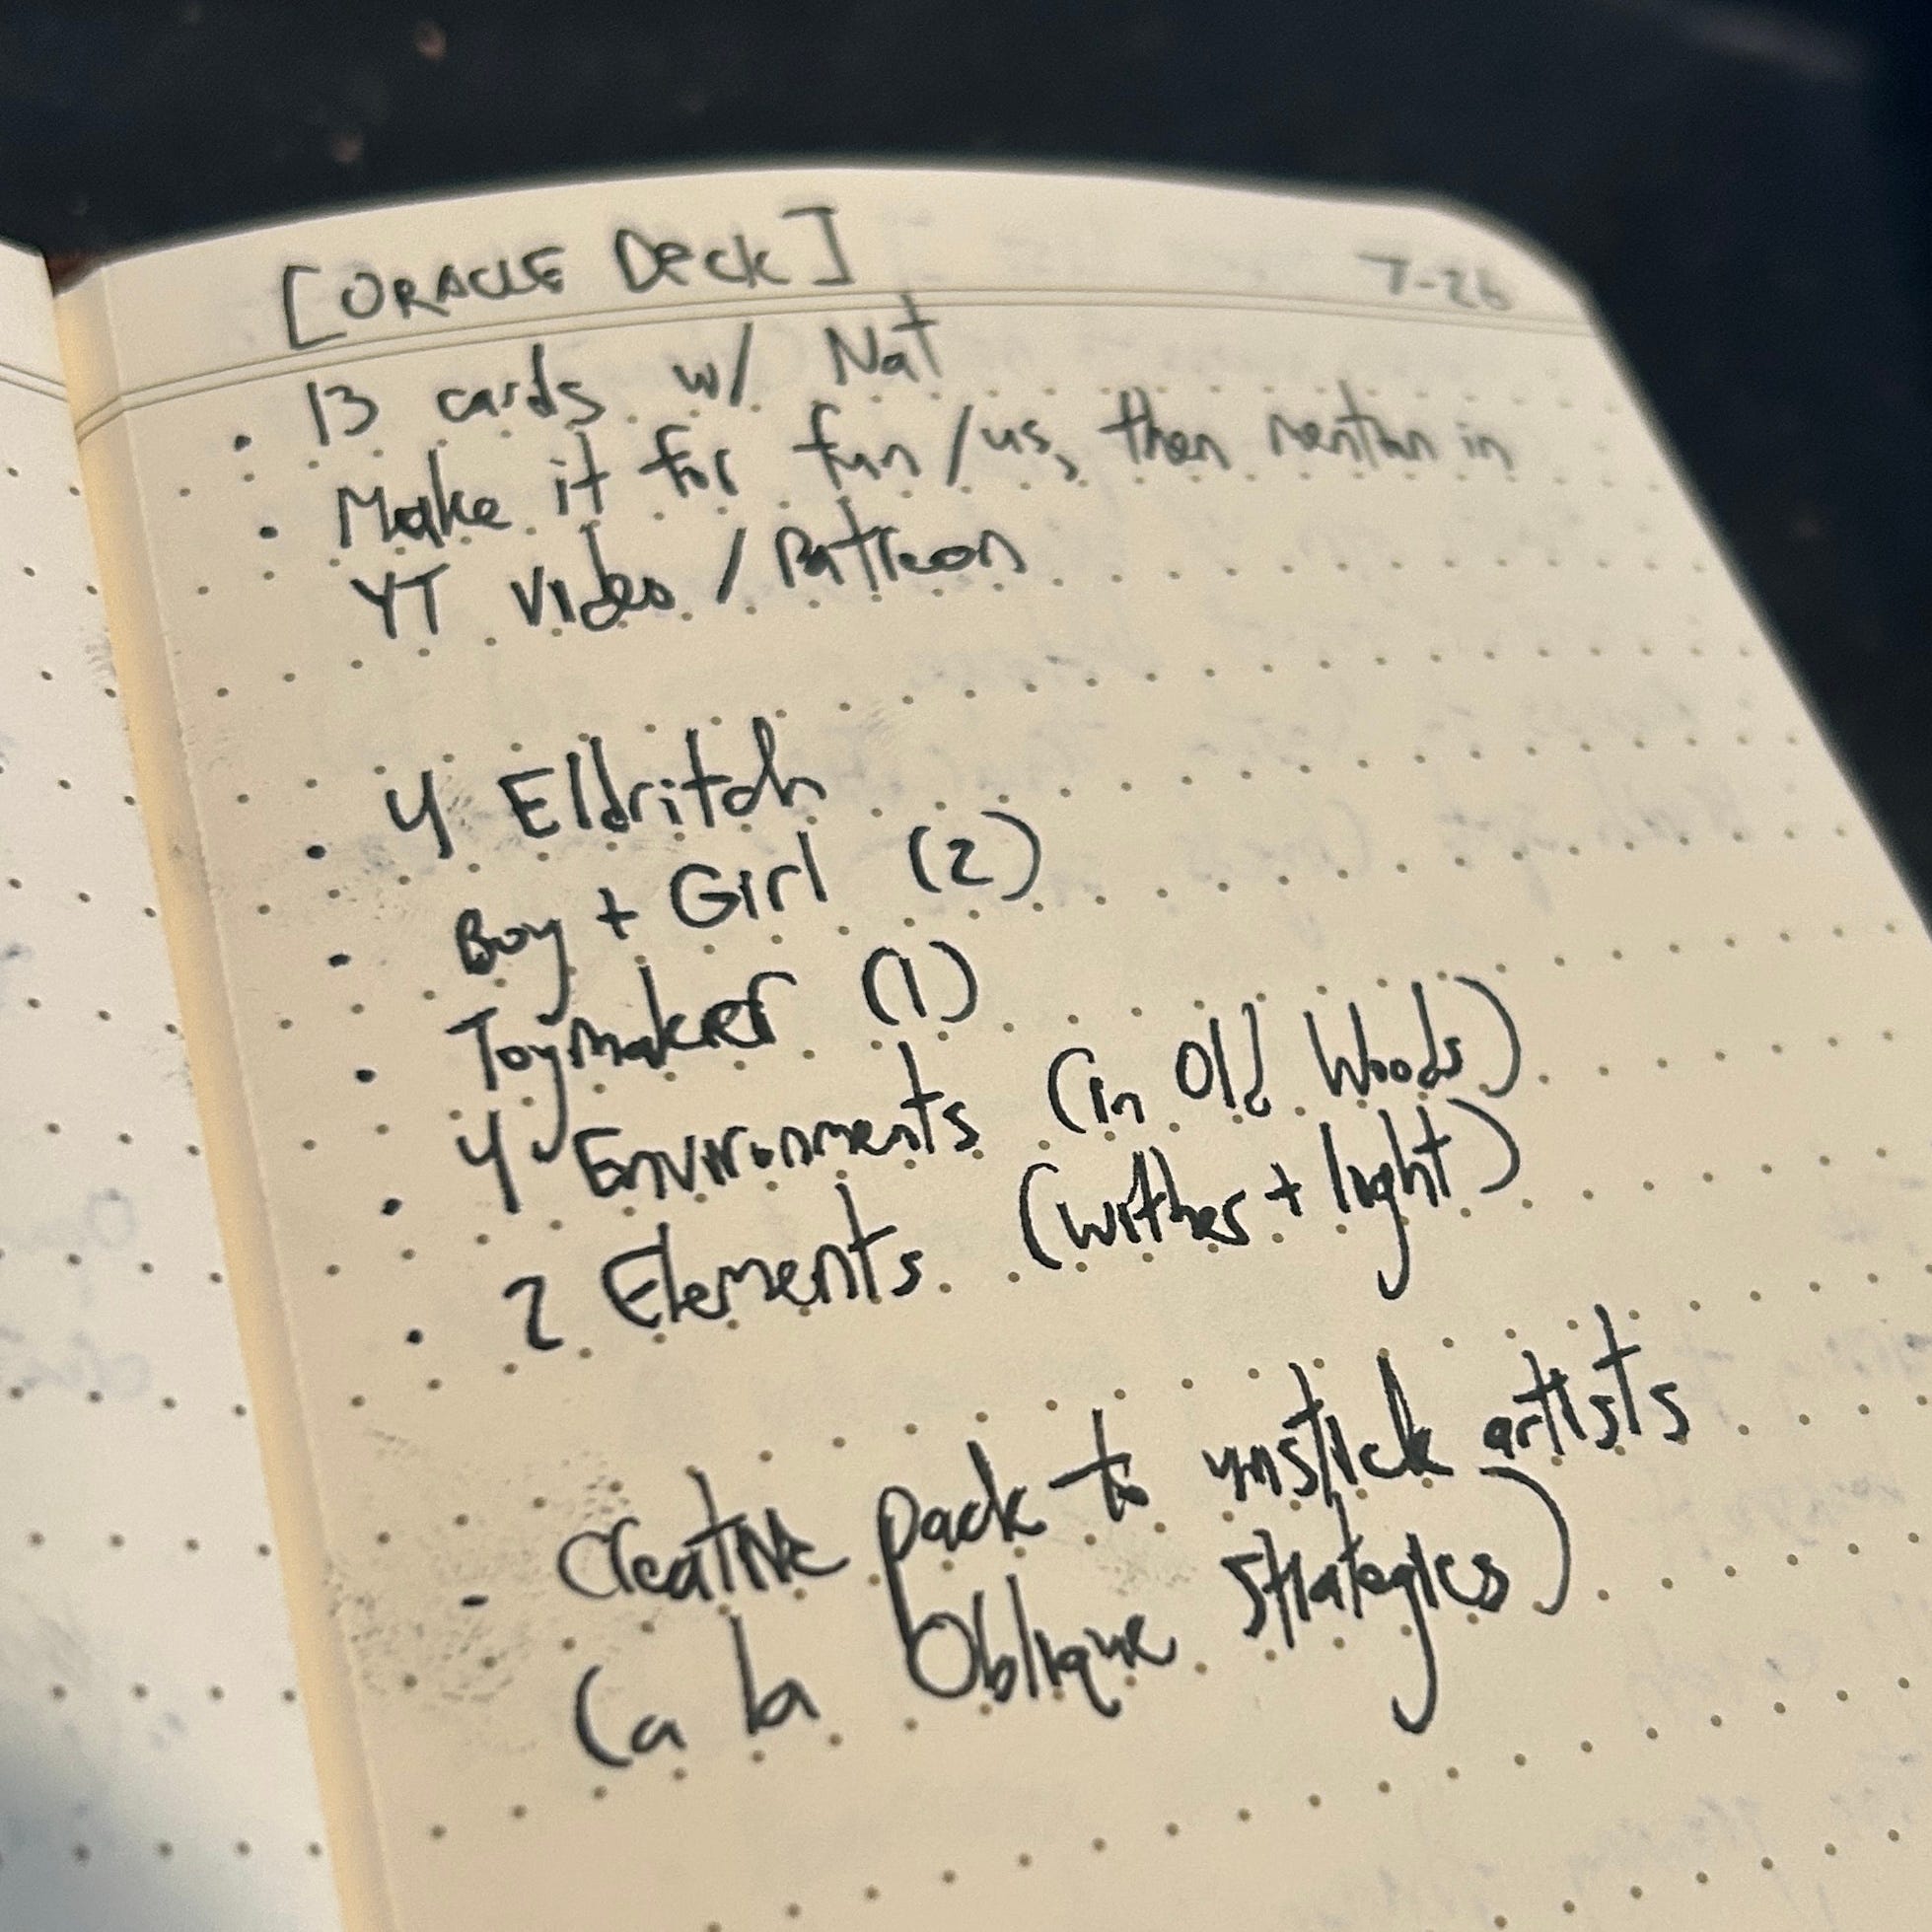 [ORACLE Deck] 7-26
• 13 cards w/ Nat
• Make it for fun/us, then mention in
YT video / Patreon
• 4 Eldritch
• Boy + Girl (2)
• Toymaker (1)
• 4 Environments (in Old Woods)
• 2 Elements (wither + light)
- Creative pack to unstick artists
(a la Oblique Strategies)